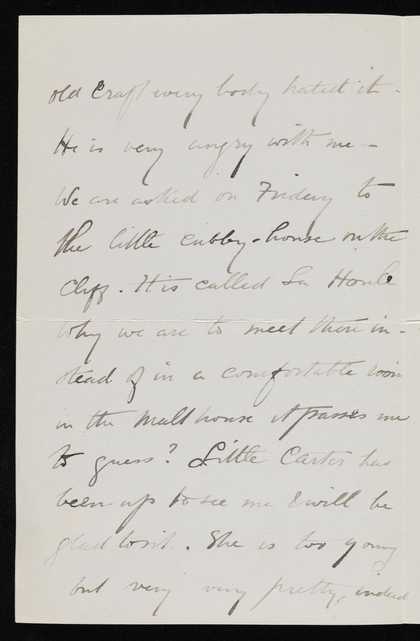 old Craft every body hated it -
He is very angry with me -
We are asked on Friday to
the little cubby-house on the
Cliff. It is called La Houle
Why we are to meet there in-
stead of in a comfortable room
in the Malt house it passes me
to guess? Little Carter has
been up to see me & will be
glad to sit. She is too young
but very very pretty, indeed